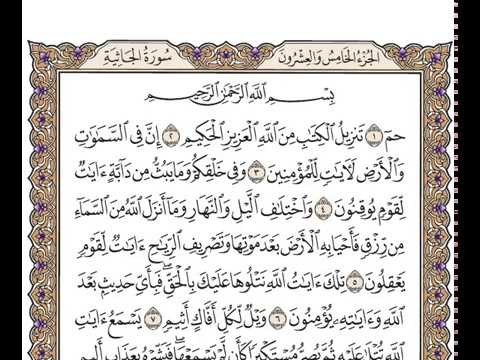 الجزء الخامس والعشرون
سورة الجاثية
بِسْمِ اللَّهِ الرَّحْمَٰنِ الرَّحِيمِ
حمٓ ١ تَنزِيلُ الْكِتَابِ مِنَ اللَّهِ الْعَزِيزِ الْحَكِيمِ ٢ إِنَّ فِي السَّمَاوَاتِ
وَالْأَرْضِ لَآيَاتٍ لِّلْمُؤْمِنِينَ ٣ وَفِي خَلْقِكُمْ وَمَا يَبُثُّ مِن دَابَّةٍ ءَايَاتٌ
لِّقَوْمٍ يُوقِنُونَ ٤ وَاخْتِلَافِ الَّيْلِ وَالنَّهَارِ وَمَا أَنزَلَ اللَّهُ مِنَ السَّمَاءِ
مِن رِّزْقٍ فَأَحْيَا بِهِ الْأَرْضَ بَعْدَ مَوْتِهَا وَتَصْرِيفِ الرِّيَاحِ ءَايَاتٌ لِّقَوْمٍ
يَعْقِلُونَ ٥ تِلْكَ ءَايَاتُ اللَّهِ نَتْلُوهَا عَلَيْكَ بِالْحَقِّ ۖ فَبِأَيِّ حَدِيثٍ بَعْدَ
اللَّهِ وَءَايَاتِهِ يُؤْمِنُونَ ٦ وَيْلٌ لِّكُلِّ أَفَّاكٍ أَثِيمٍ ٧ يَسْمَعُ ءَايَاتِ
اللَّهِ تُتْلَىٰ عَلَيْهِ ثُمَّ يُصِرُّ مُسْتَكْبِرًا كَأَن لَّمْ يَسْمَعْهَا ۖ فَبَشِّرْهُ بِعَذَابٍ أَلِيمٍ